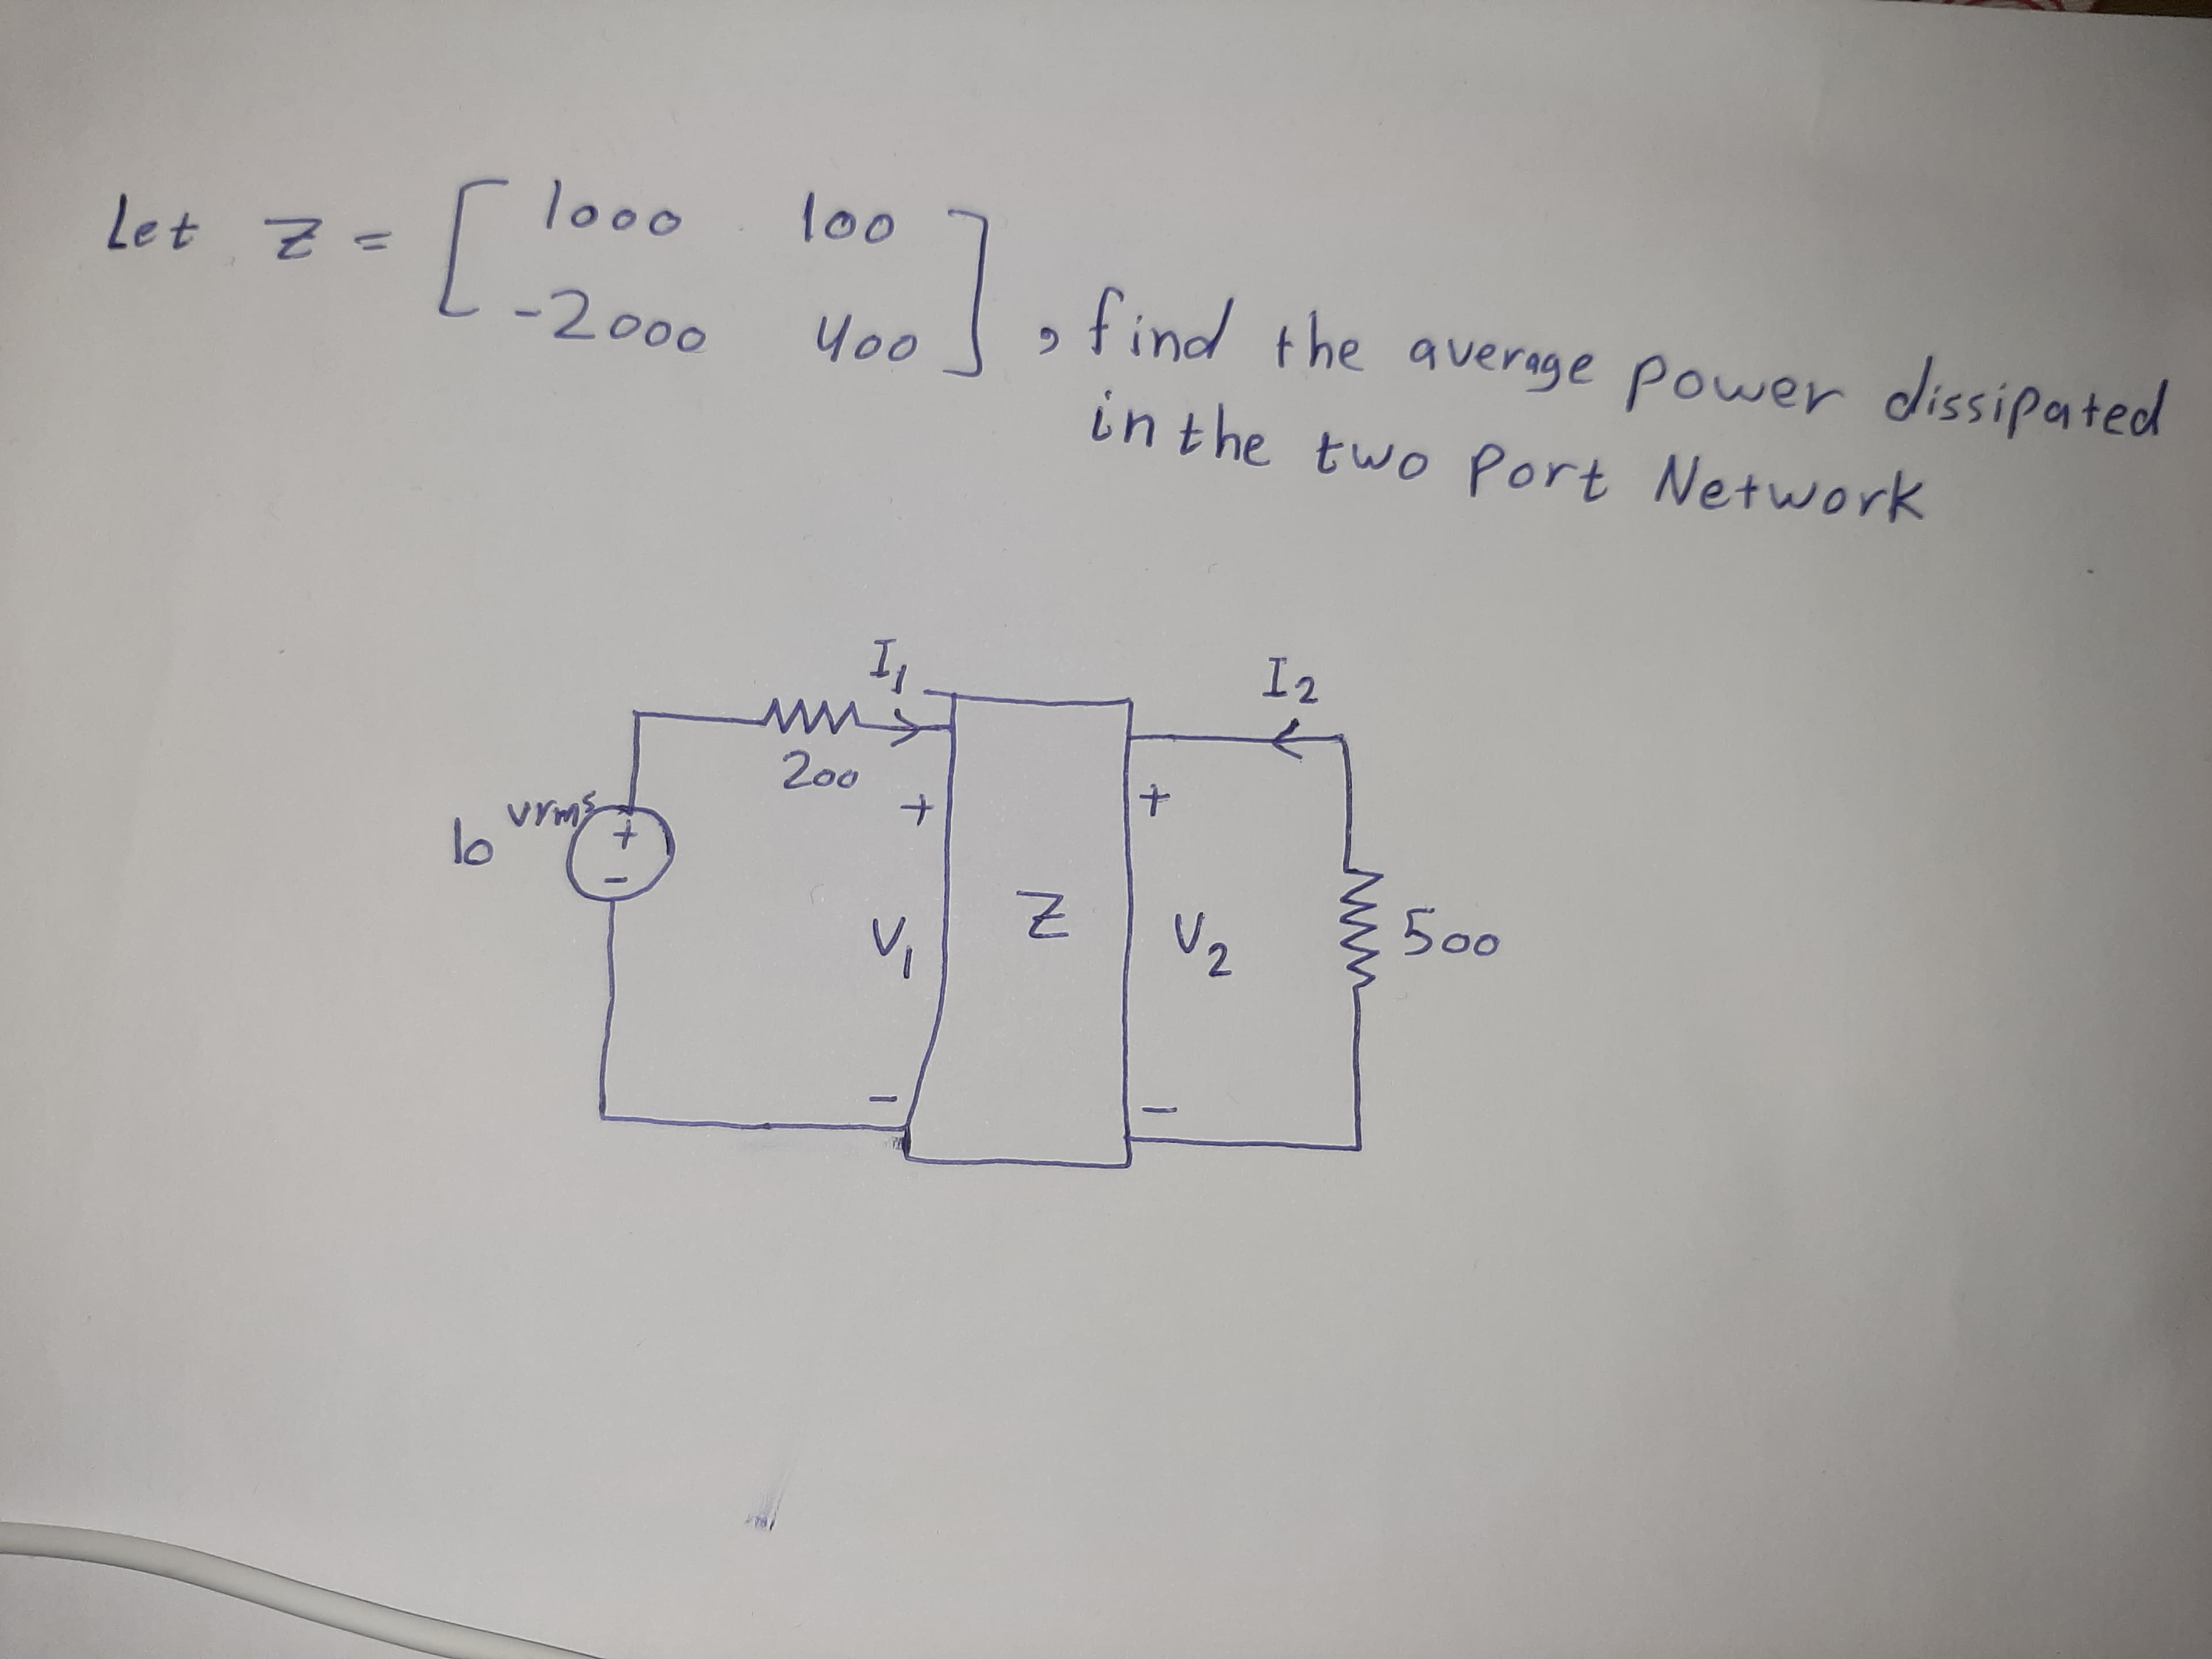 Let Z = [ 1000 100
-2000 400 ] , find the average power dissipated
in the two port Network
I1
I2
200
+
+
10 vrms
+
-
V1
Z
V2
500
-
-